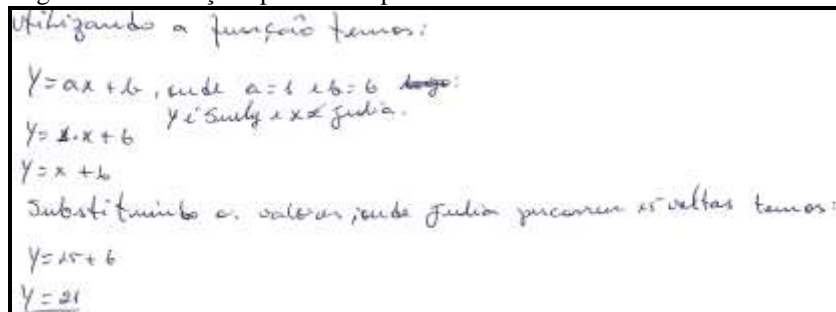 Utilizando a função temos:
Y = ax + b, onde a = 1 e b = 6 logo:
Y é Suely e x é Julia.
Y = 1.x + 6
Y = x + 6
Substituindo os valores, onde Julia percorreu 15 voltas temos:
Y = 15 + 6
Y = 21